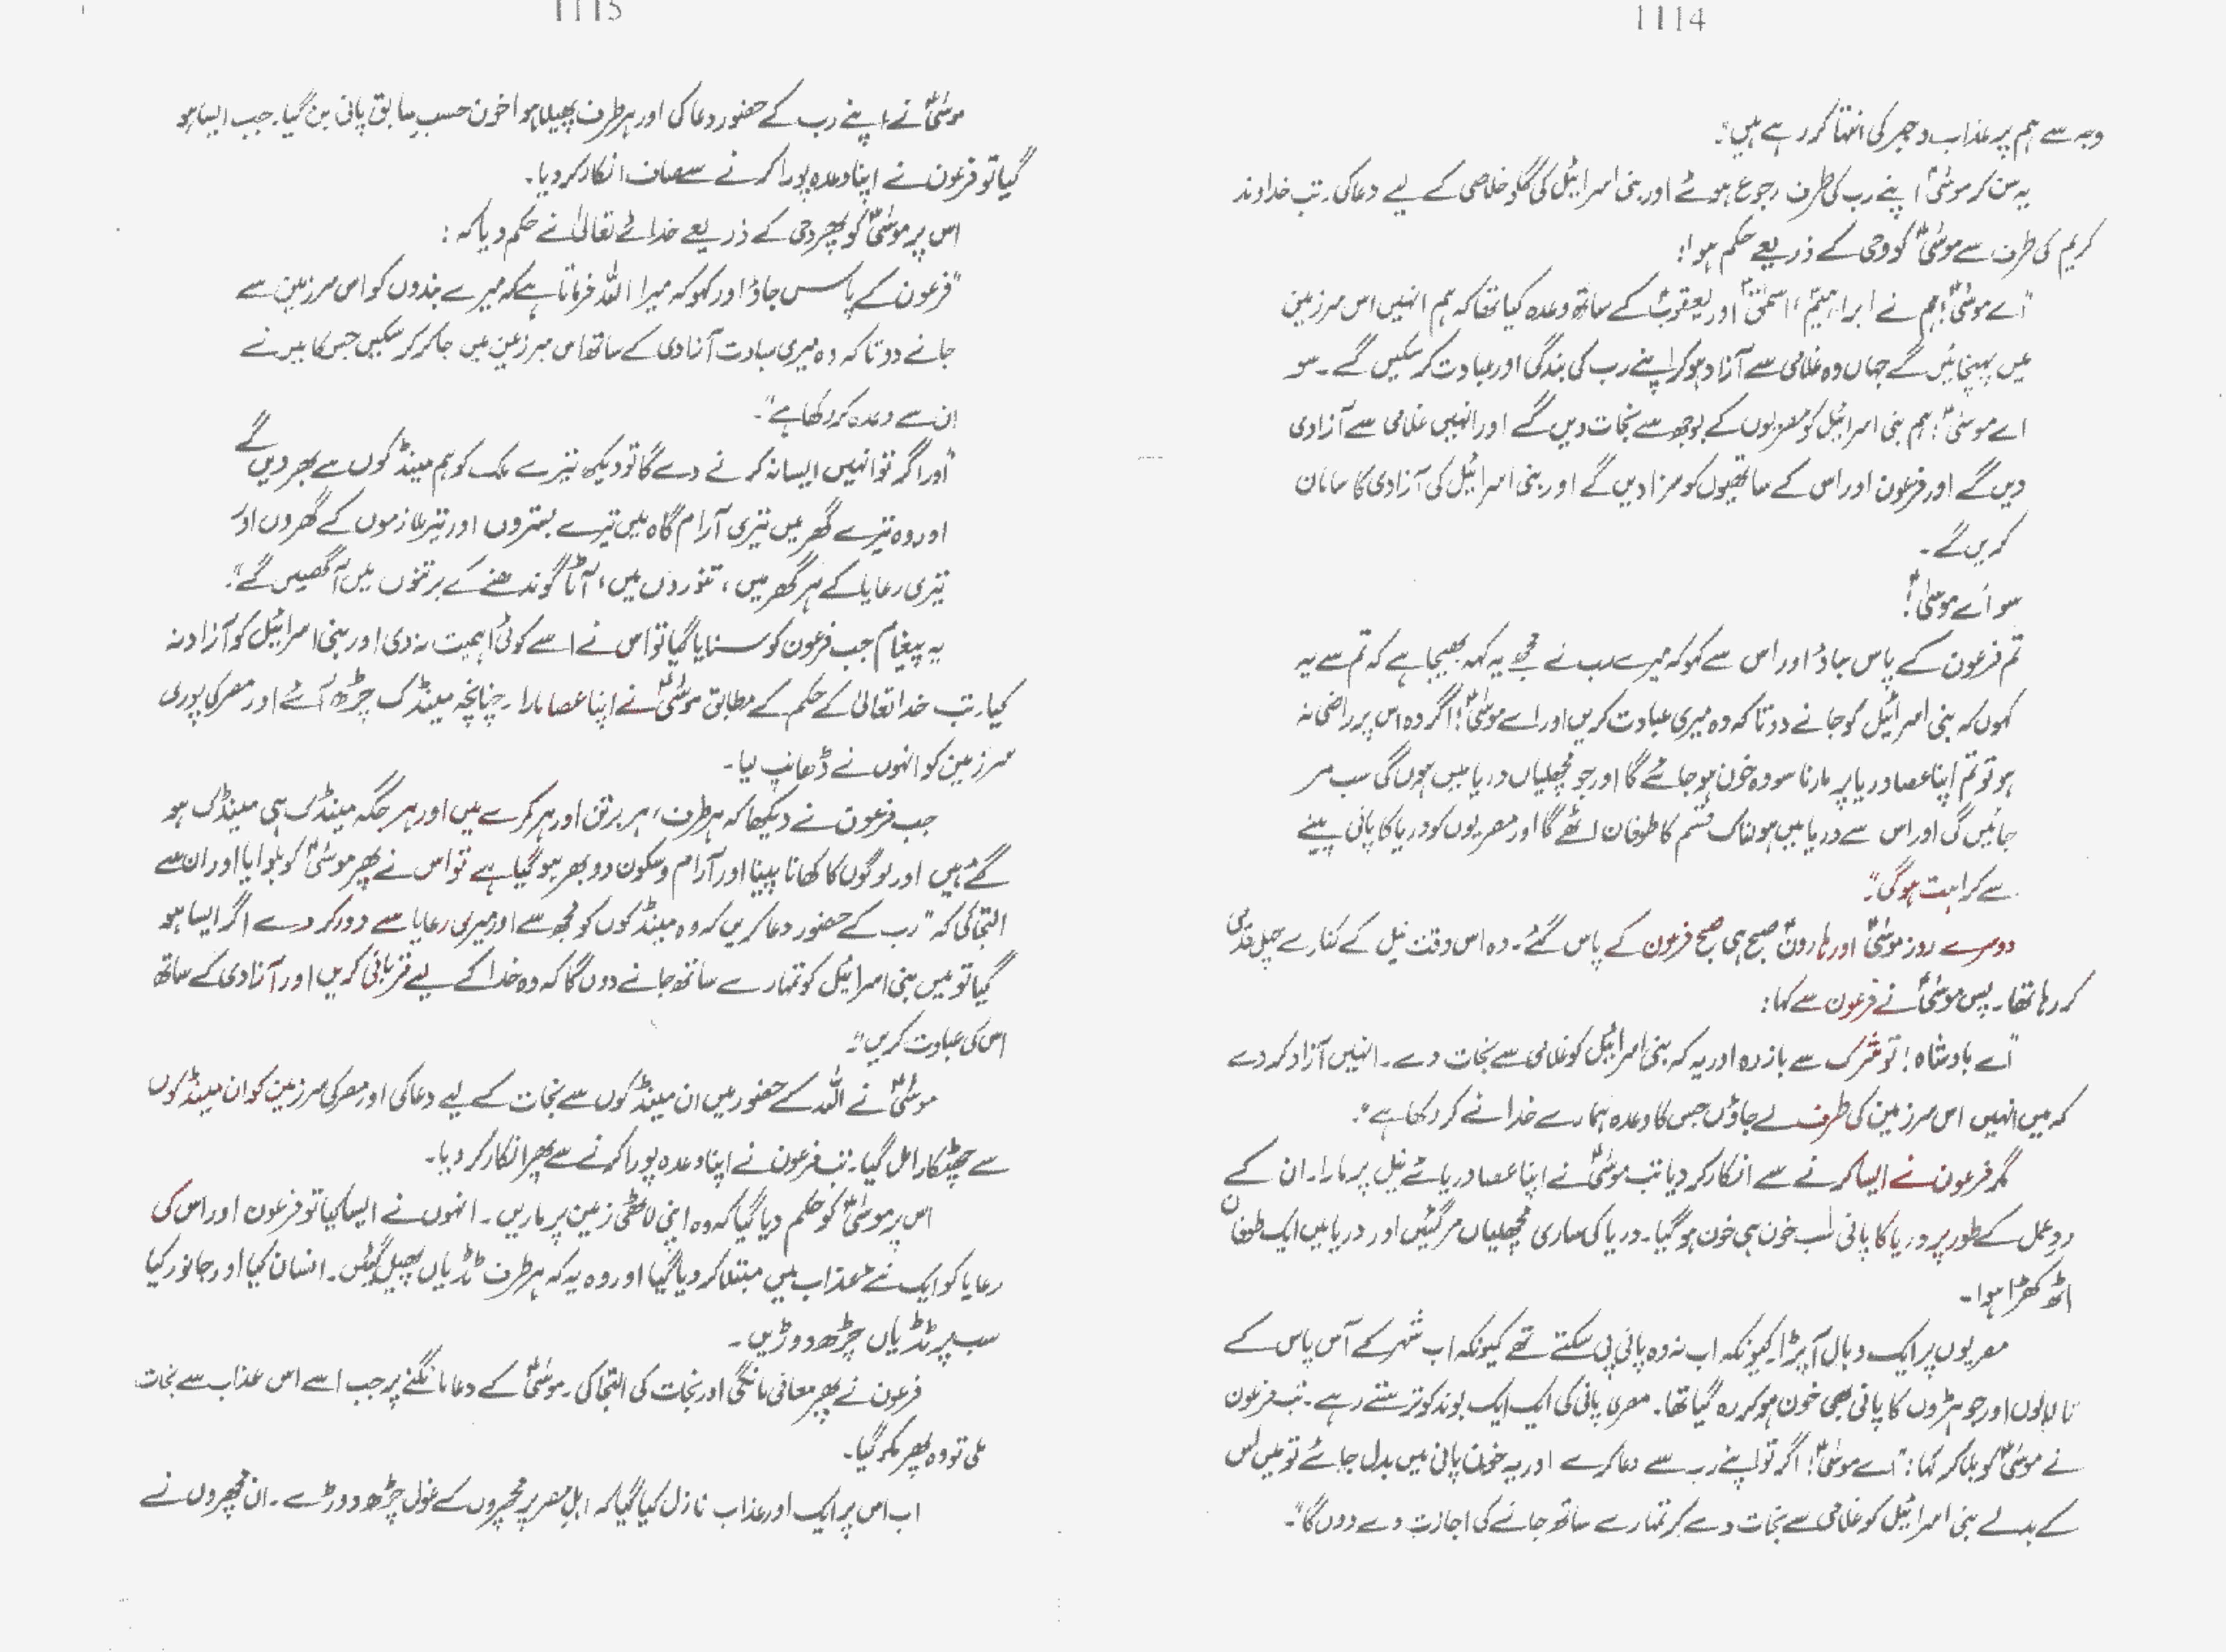 1114
وجہ سے ہم پر عذاب و جبر کی انتہا کر رہے ہیں"۔
یہ سن کر موسیٰؑ اپنے رب کی طرف رجوع ہوئے اور بنی اسرائیل کی گلو خلاصی کے لیے دعا کی۔ تب خداوند
کریم کی طرف سے موسیٰؑ کو وحی کے ذریعے حکم ہوا؛
"اے موسیٰؑ! ہم نے ابراہیمؑ، اسحٰقؑ اور یعقوبؑ کے ساتھ وعدہ کیا تھا کہ ہم انہیں اس سرزمین
میں پہنچائیں گے جہاں وہ غلامی سے آزاد ہو کر اپنے رب کی بندگی اور عبادت کر سکیں گے۔ سو
اے موسیٰؑ! ہم بنی اسرائیل کو مصریوں کے بوجھ سے نجات دیں گے اور انہیں غلامی سے آزادی
دیں گے اور فرعون اور اس کے ساتھیوں کو سزا دیں گے اور بنی اسرائیل کی آزادی کا سامان
کریں گے۔
سو اے موسیٰؑ!
تم فرعون کے پاس جاؤ اور اس سے کہو کہ میرے رب نے مجھے یہ کہہ بھیجا ہے کہ تم سے یہ
کہوں کہ بنی اسرائیل کو جانے دو تا کہ وہ میری عبادت کریں اور اے موسیٰؑ! اگر وہ اس پر راضی نہ
ہو تو تم اپنا عصا دریا پر مارنا سو وہ خون ہو جائے گا اور جو مچھلیاں دریا میں ہوں گی سب مر
جائیں گی اور اس سے دریا میں ہولناک قسم کا طوفان اٹھے گا اور مصریوں کو دریا کا پانی پینے
سے کراہت ہو گی"۔
دوسرے روز موسیٰؑ اور ہارونؑ صبح ہی صبح فرعون کے پاس گئے۔ وہ اس وقت نیل کے کنارے چہل قدمی
کر رہا تھا۔ پس موسیٰؑ نے فرعون سے کہا:
"اے بادشاہ! تو شرک سے باز رہ اور یہ کہ بنی اسرائیل کو غلامی سے نجات دے۔ انہیں آزاد کر دے
کہ میں انہیں اس سرزمین کی طرف لے جاؤں جس کا وعدہ ہمارے خدا نے کر رکھا ہے"۔
مگر فرعون نے ایسا کرنے سے انکار کر دیا تب موسیٰؑ نے اپنا عصا دریائے نیل پر مارا۔ ان کے
ردِ عمل کے طور پر دریا کا پانی سب خون ہی خون ہو گیا۔ دریا کی ساری مچھلیاں مر گئیں اور دریا میں ایک طوفان
اٹھ کھڑا ہوا۔
مصریوں پر ایک وبال آ پڑا کیونکہ اب نہ وہ پانی پی سکتے تھے کیونکہ اب شہر کے آس پاس کے
تالابوں اور جوہڑوں کا پانی بھی خون ہو کر رہ گیا تھا۔ مصری پانی کی ایک ایک بوند کو ترستے رہے۔ تب فرعون
نے موسیٰؑ کو بلا کر کہا: "اے موسیٰؑ! اگر تو اپنے رب سے دعا کرے اور یہ خون پانی میں بدل جائے تو میں اس
کے بدلے بنی اسرائیل کو غلامی سے نجات دے کر تمہارے ساتھ جانے کی اجازت دے دوں گا"۔
1115
موسیٰؑ نے اپنے رب کے حضور دعا کی اور ہر طرف پھیلا ہوا خون حسبِ سابق پانی بن گیا۔ جب ایسا ہو
گیا تو فرعون نے اپنا وعدہ پورا کرنے سے صاف انکار کر دیا۔
اس پر موسیٰؑ کو پھر وحی کے ذریعے خدائے تعالیٰ نے حکم دیا کہ:
"فرعون کے پاس جاؤ اور کہو کہ میرا اللہ فرماتا ہے کہ میرے بندوں کو اس سرزمین سے
جانے دو تا کہ وہ میری عبادت آزادی کے ساتھ اس سرزمین میں جا کر کر سکیں جس کا میں نے
ان سے وعدہ کر رکھا ہے"۔
"اور اگر تو انہیں ایسا نہ کرنے دے گا تو دیکھ تیرے ملک کو ہم مینڈکوں سے بھر دیں گے
اور وہ تیرے گھر میں تیری آرام گاہ میں تیرے بستروں اور تیرے ملازموں کے گھروں اور
تیری رعایا کے ہر گھر میں، تنوروں میں، آٹا گوندھنے کے برتنوں میں آ گھسیں گے"۔
یہ پیغام جب فرعون کو سنایا گیا تو اس نے اسے کوئی اہمیت نہ دی اور بنی اسرائیل کو آزاد نہ
کیا۔ تب خدا تعالیٰ کے حکم کے مطابق موسیٰؑ نے اپنا عصا مارا۔ چنانچہ مینڈک چڑھ آئے اور مصر کی پوری
سرزمین کو انہوں نے ڈھانپ لیا۔
جب فرعون نے دیکھا کہ ہر طرف، ہر برتن اور ہر کمرے میں اور ہر جگہ مینڈک ہی مینڈک ہو
گئے ہیں اور لوگوں کا کھانا پینا اور آرام و سکون دوبھر ہو گیا ہے تو اس نے پھر موسیٰؑ کو بلوایا اور ان سے
التجا کی کہ "رب کے حضور دعا کریں کہ وہ مینڈکوں کو مجھ سے اور میری رعایا سے دور کر دے اگر ایسا ہو
گیا تو میں بنی اسرائیل کو تمہارے ساتھ جانے دوں گا کہ وہ خدا کے لیے قربانی کریں اور آزادی کے ساتھ
اس کی عبادت کریں"۔
موسیٰؑ نے اللہ کے حضور میں ان مینڈکوں سے نجات کے لیے دعا کی اور مصر کی سرزمین کو ان مینڈکوں
سے چھٹکارا مل گیا۔ تب فرعون نے اپنا وعدہ پورا کرنے سے پھر انکار کر دیا۔
اس پر موسیٰؑ کو حکم دیا گیا کہ وہ اپنی لاٹھی زمین پر ماریں۔ انہوں نے ایسا کیا تو فرعون اور اس کی
رعایا کو ایک نئے عذاب میں مبتلا کر دیا گیا اور وہ یہ کہ ہر طرف ٹڈیاں پھیل گئیں۔ انسان کیا اور جانور کیا
سب پر ٹڈیاں چڑھ دوڑیں۔
فرعون نے پھر معافی مانگی اور نجات کی التجا کی۔ موسیٰؑ کے دعا مانگنے پر جب اسے اس عذاب سے نجات
ملی تو وہ پھر مکر گیا۔
اب اس پر ایک اور عذاب نازل کیا گیا کہ اہلِ مصر پر مچھروں کے غول چڑھ دوڑے۔ ان مچھروں نے